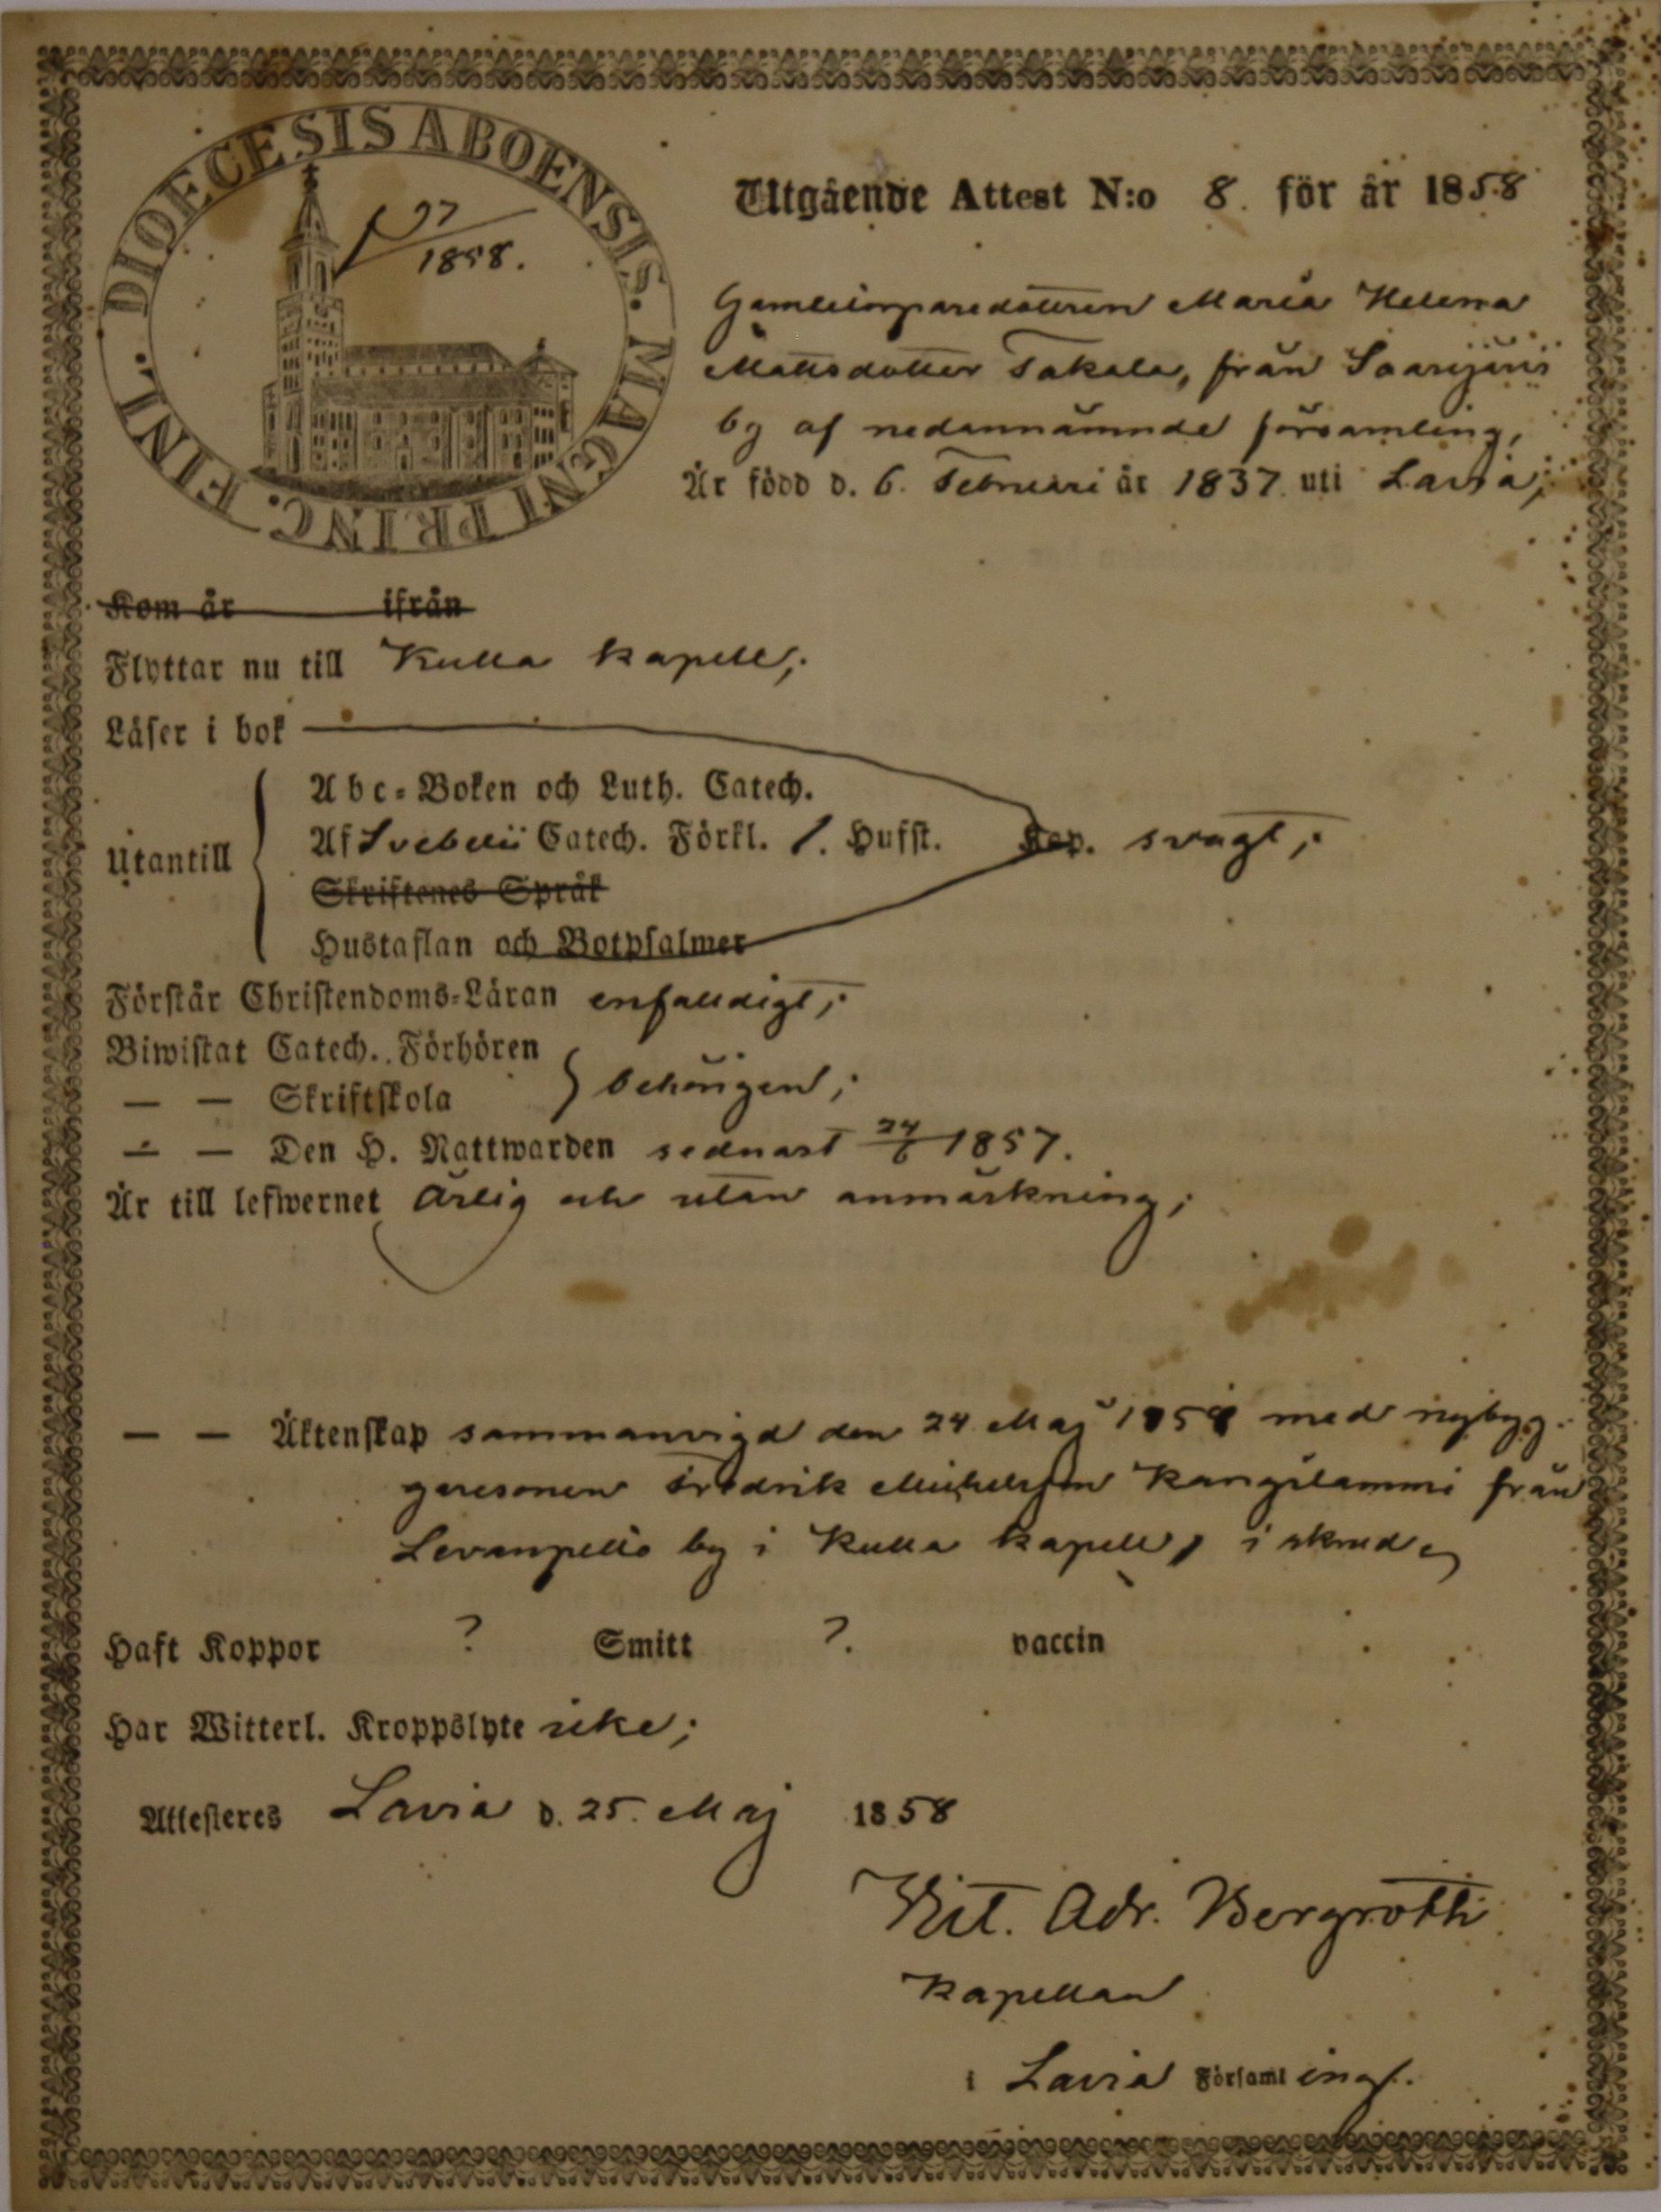 DIOECESIS ABOENSIS. MAGNI PRINC. FINL.
97
1858.
Utgående Attest N:o 8. för år 1858
Gamletorparedottren Maria Helena
Mattsdotter Takala, från Saarijärvi
by af nedannämnde församling,
Är född d. 6. Februari år 1837. uti Lavia;
Kom år ifrån
Flyttar nu till Kulla kapell;
Läser i bok
Abc-Boken och Luth. Catech.
Utantill
Af Svebelii Catech. Förkl. 1. Hufst. Kap. svagt;
Skriftenes Språk
Hustaflan och Botpsalmer
Förstår Christendoms-Läran enfalldigt;
Biwistat Catech. Förhören
— — Skriftskola } behörigen;
— — Den H. Nattwarden sednast 24/6 1857.
Är till lefwernet ärlig och utan anmärkning;
— — Äktenskap sammanvigd den 24 Maj 1858 med nybyg-
garesonen Fredrik Michelsson Kangilammi från
Levanpelto by i Kulla kapell, i skrud
Haft Koppor ? Smitt ?. vaccin
Har Witterl. Kroppslyte icke;
Attesteres Lavia d. 25. Maj 1858
Vit. Adr. Bergroth
Kapellan
i Lavia Församl ing.